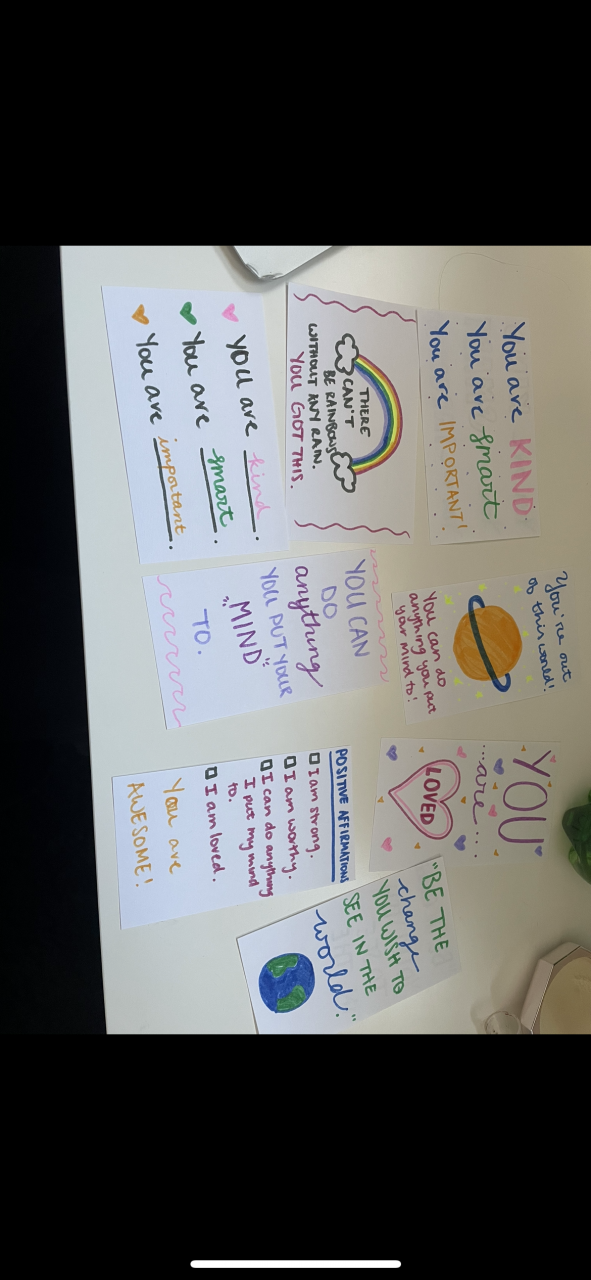 You are KIND
You are smart
You are IMPORTANT!
You're out
of this world!
You can do
anything you put
your mind to!
YOU
...are...
LOVED
THERE
CAN'T
BE RAINBOWS
WITHOUT ANY RAIN.
YOU GOT THIS.
YOU CAN
DO
anything
YOU PUT YOUR
"MIND"
TO.
POSITIVE AFFIRMATIONS
I am strong.
I am worthy.
I can do anything
I put my mind
to.
I am loved.
You are
AWESOME!
"BE THE
change
YOU WISH TO
SEE IN THE
world."
you are kind.
You are smart.
You are important.